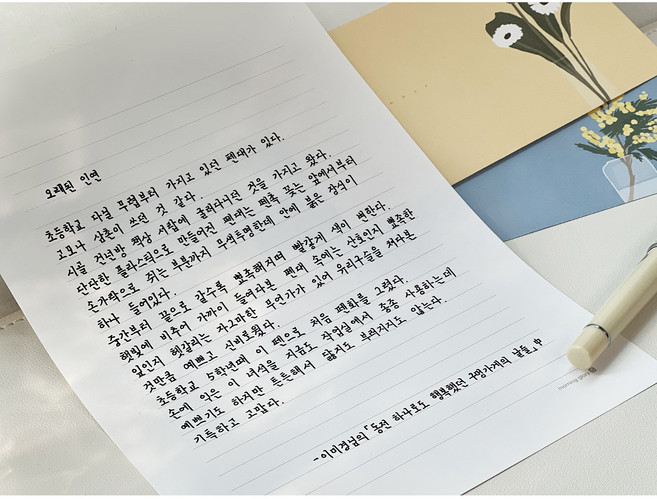 오래된 인연
초등학교 다닐 무렵부터 가지고 있던 펜대가 있다.
고모나 삼촌이 쓰던 것 같다.
시골 건넌방 책상 서랍에 굴러다니던 것을 가지고 왔다.
단단한 플라스틱으로 만들어진 펜대는 펜촉 꽂는 앞에서부터
손가락으로 쥐는 부분까지 무색투명한데 안에 붉은 장식이
하나 들어있다.
중간부터 끝으로 갈수록 뾰족해지며 빨갛게 색이 변한다.
햇빛에 비추어 가까이 들여다본 펜대 속에는 산호인지 뾰족한
잎인지 헷갈리는 자그마한 무언가가 있어 유리구슬을 쳐다본
것만큼 예쁘고 신비로웠다.
초등학교 5학년때 이 펜으로 처음 펜화를 그렸다.
손에 익은 이 녀석을 지금도 작업실에서 종종 사용하는데
예쁘기도 하지만 튼튼해서 닳지도 부러지지도 않는다.
기특하고 고맙다.
-이미경님의 「동전 하나로도 행복했던 구멍가게의 날들」中
morning glory